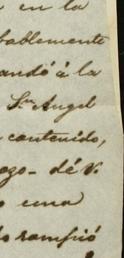 en la
bablemente
andó á la
Sr. Angel
contenido,
ozo - dé V.
una
rompió